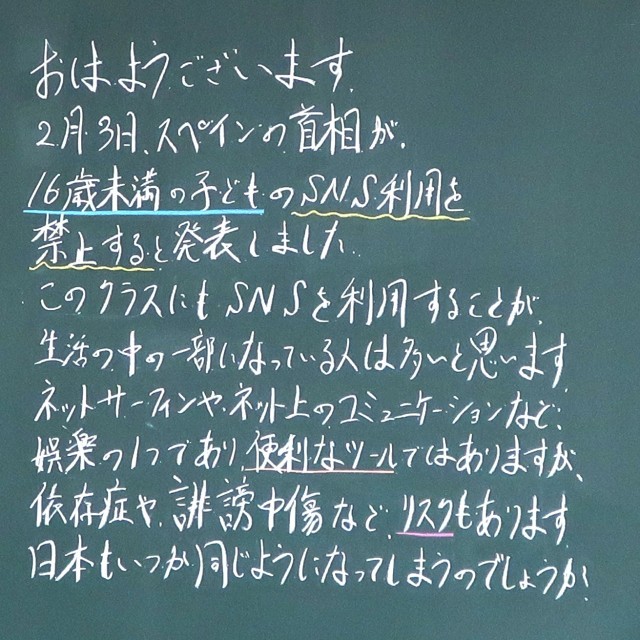 おはようございます。
2月3日、スペインの首相が、
16歳未満の子どものSNS利用を
禁止すると発表しました。
このクラスにもSNSを利用することが、
生活の中の一部になっている人は多いと思います。
ネットサーフィンや、ネット上のコミュニケーションなど、
娯楽の1つであり便利なツールではありますが、
依存症や、誹謗中傷など、リスクもあります。
日本もいつか同じようになってしまうのでしょうか?